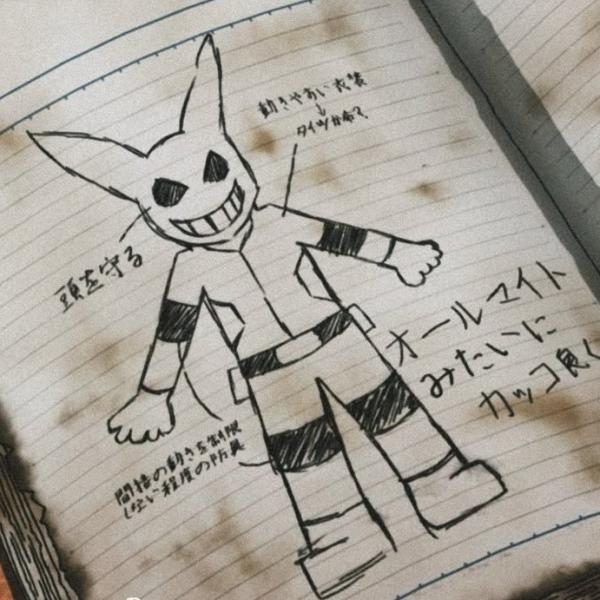 動きやすい衣装
↓
タイツかな?
頭を守る
オールマイト
みたいに
カッコ良く
関接の動きを制限
しない程度の防具